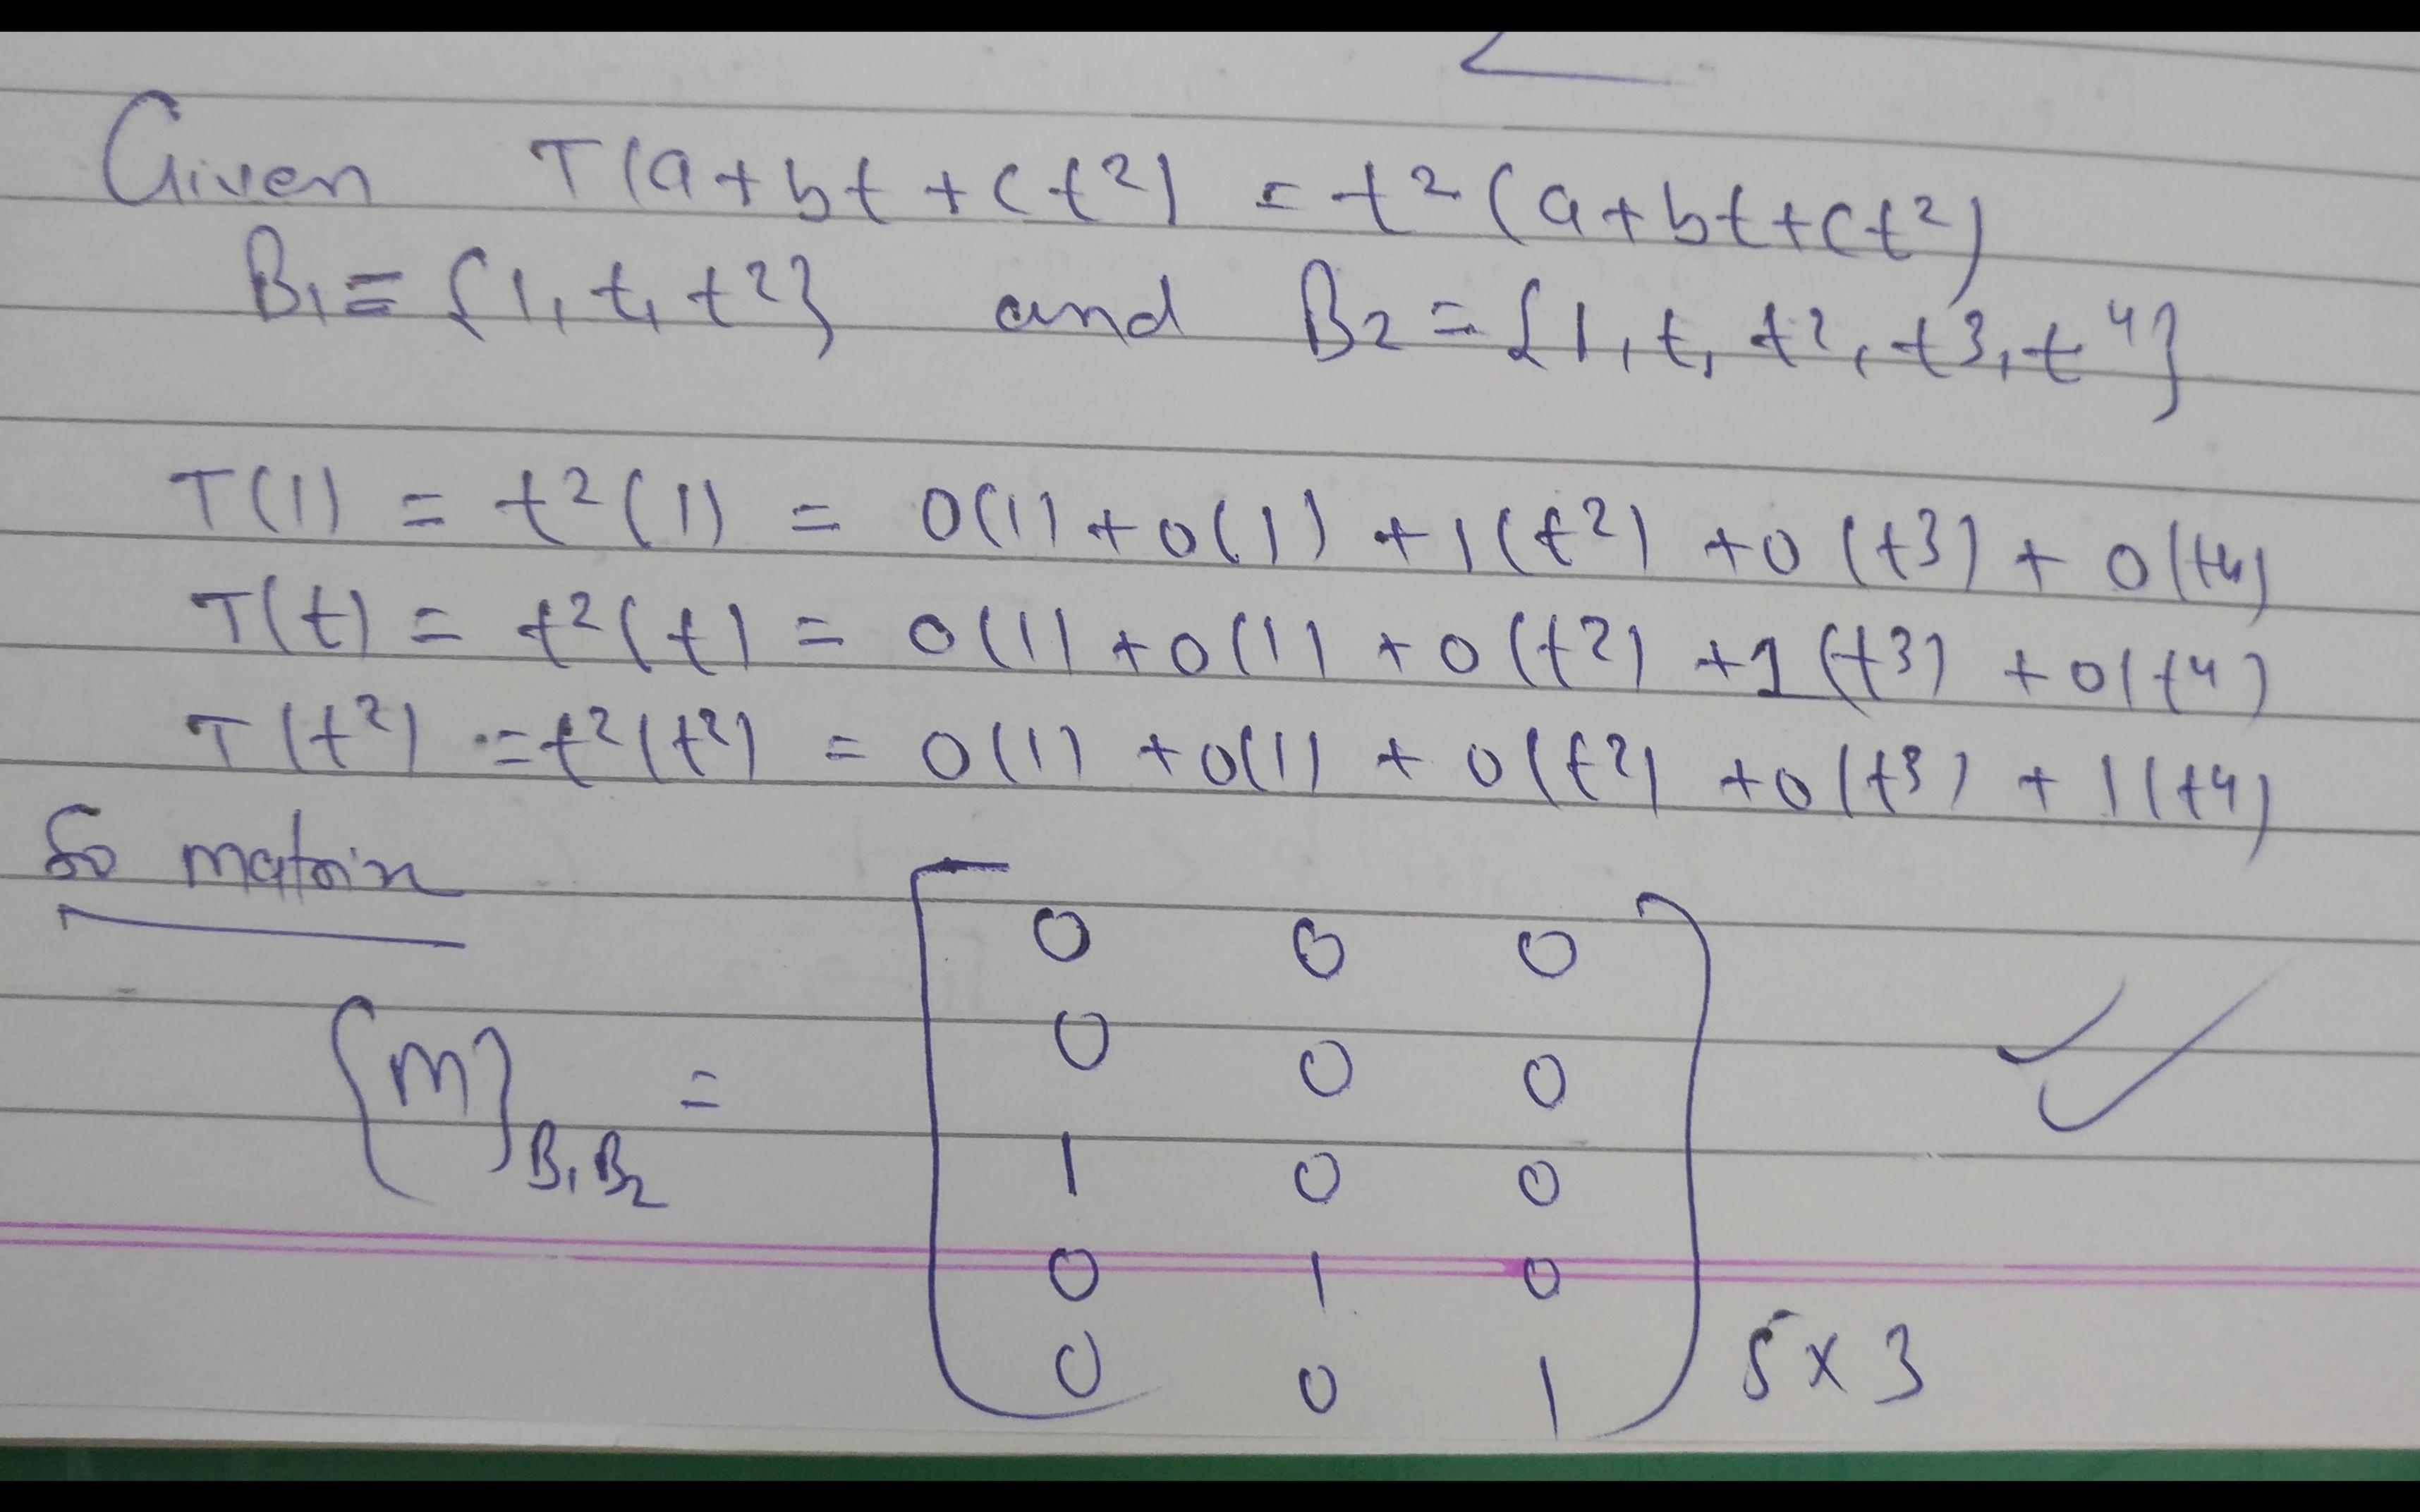 Given T(a+bt+ct²) = t²(a+bt+ct²)
B₁ = {1, t, t²} and B₂ = {1, t, t², t³, t⁴}
T(1) = t²(1) = 0(1)+0(1)+1(t²)+0(t³)+0(t⁴)
T(t) = t²(t) = 0(1)+0(1)+0(t²)+1(t³)+0(t⁴)
T(t²) = t²(t²) = 0(1)+0(1)+0(t²)+0(t³)+1(t⁴)
So matrix
0 0 0
0 0 0
[M]B₁B₂ =
1 0 0
0 1 0
0 0 1
5x3